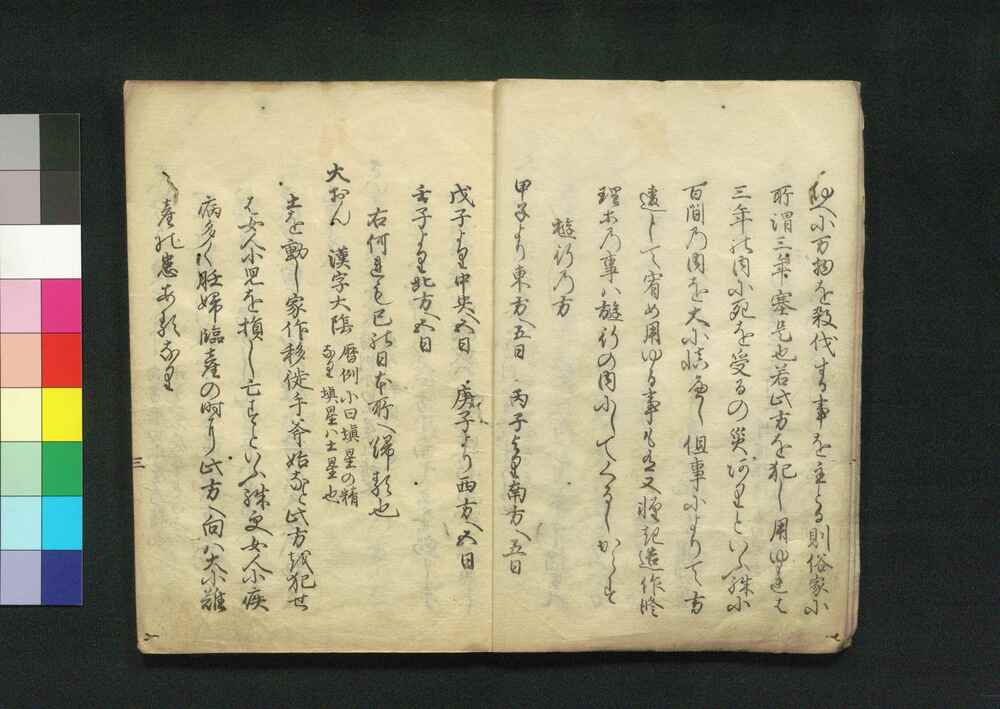 故に万物を殺伐する事を主とる則俗家に
所謂三年塞是也若此方を犯し用ゆれは
三年の内に死を受るの災有りといふ殊に
百間の内を大に慎へし但事によりて方
違して宥め用ゆる事も有又種起造作修
理等の事は遊行の間にしてくるしからす
遊行の方
甲子より東方へ五日 丙子より南方へ五日
戊子より中央へ五日 庚子より西方へ五日
壬子より北方へ五日
右何れも巳の日本所へ帰る也
大おん 漢字大陰 暦例に曰塡星の精
なり塡星ハ土星也
土を動し家作移徙手斧始なと此方を犯せ
は女人小児を損し亡すといふ殊更女人に疾
病多く妊婦臨産の時り此方へ向ハ大に難
産の患あるなり
三